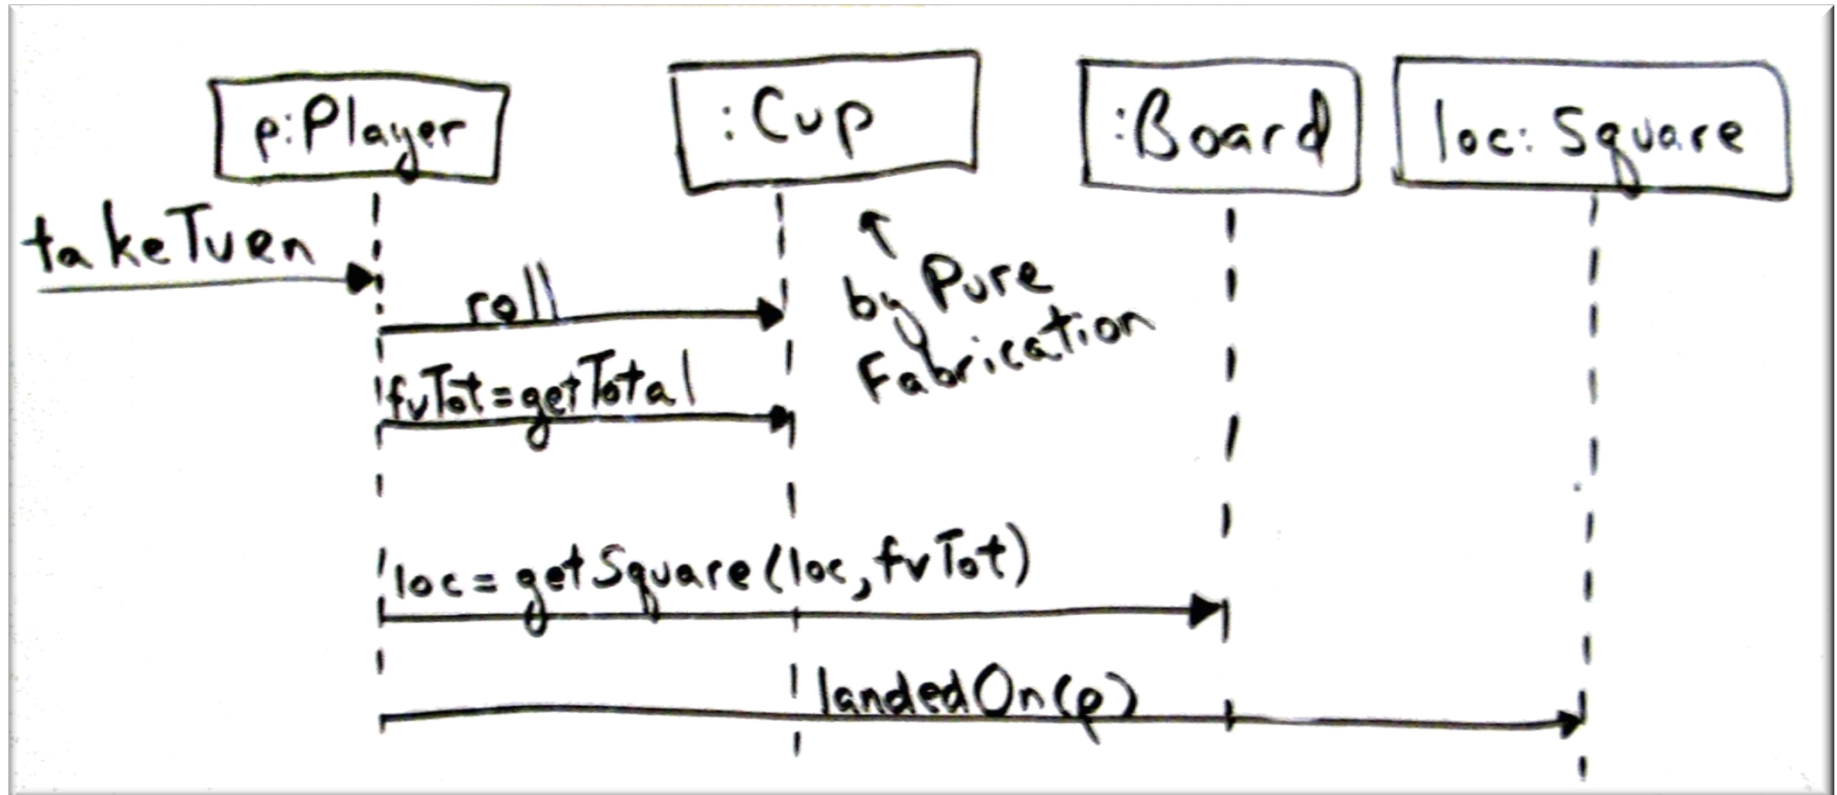 p:Player
:Cup
:Board
loc: Square
takeTurn
roll
by Pure
Fabrication
fvTot=getTotal
loc = getSquare(loc, fvTot)
landedOn(p)